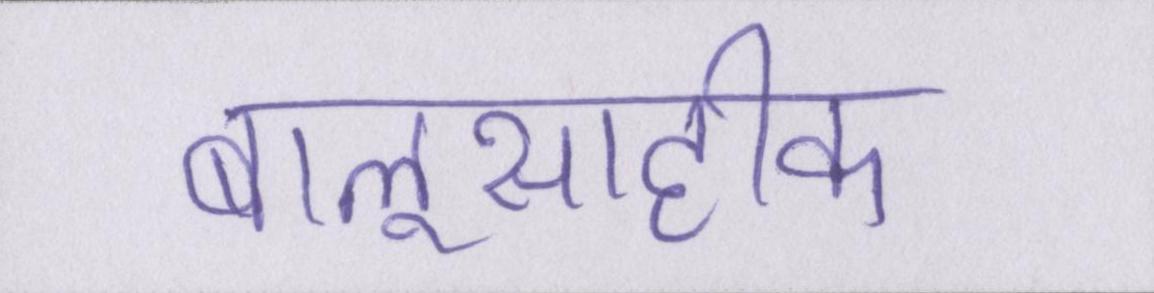 बालूसाहीक